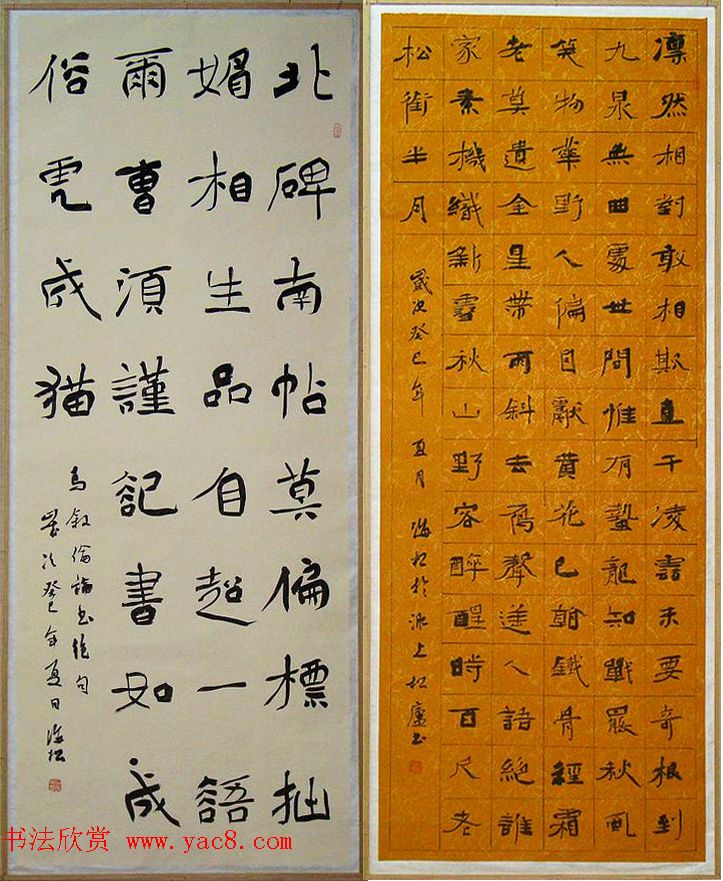 北碑南帖莫偏標拙
媚相生品自超一語
爾曹須謹記書如成
俗虎成猫
馬敘倫論書絕句
歲次癸巳年夏日海松
凛然相對敢相欺直干凌雲未要奇根到
九泉無曲處世間惟有蟄龍知戰罷秋風
笑物華野人偏自獻黃花已看鐵骨經霜
老莫遣金星帶雨斜去雁聲遙人語絕誰
家素機織新雪秋山野客醉醒時百尺老
松銜半月
歲次癸巳年夏月海松於上松廬書
书法欣赏 www.yac8.com